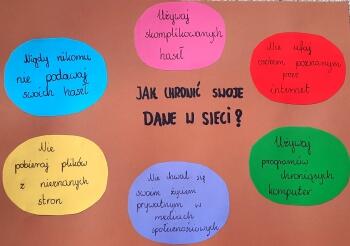 Używaj
skomplikowanych
haseł
Nigdy nikomu
nie podawaj
swoich haseł
Nie ufaj
osobom poznanym
przez
internet
JAK CHRONIĆ SWOJE
DANE W SIECI?
Nie
pobieraj plików
z nieznanych
stron
Nie chwal się
swoim życiem
prywatnym w
mediach
społecznościowych
Używaj
programów
chroniących
komputer